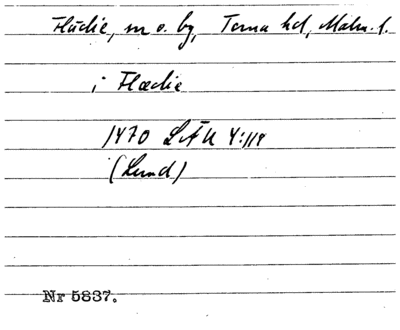 Flädie, sn o. by, Torna hd, Malm. l.
i Flædie
1470 LÄU 4:118
(Lund)
Nr 5837.